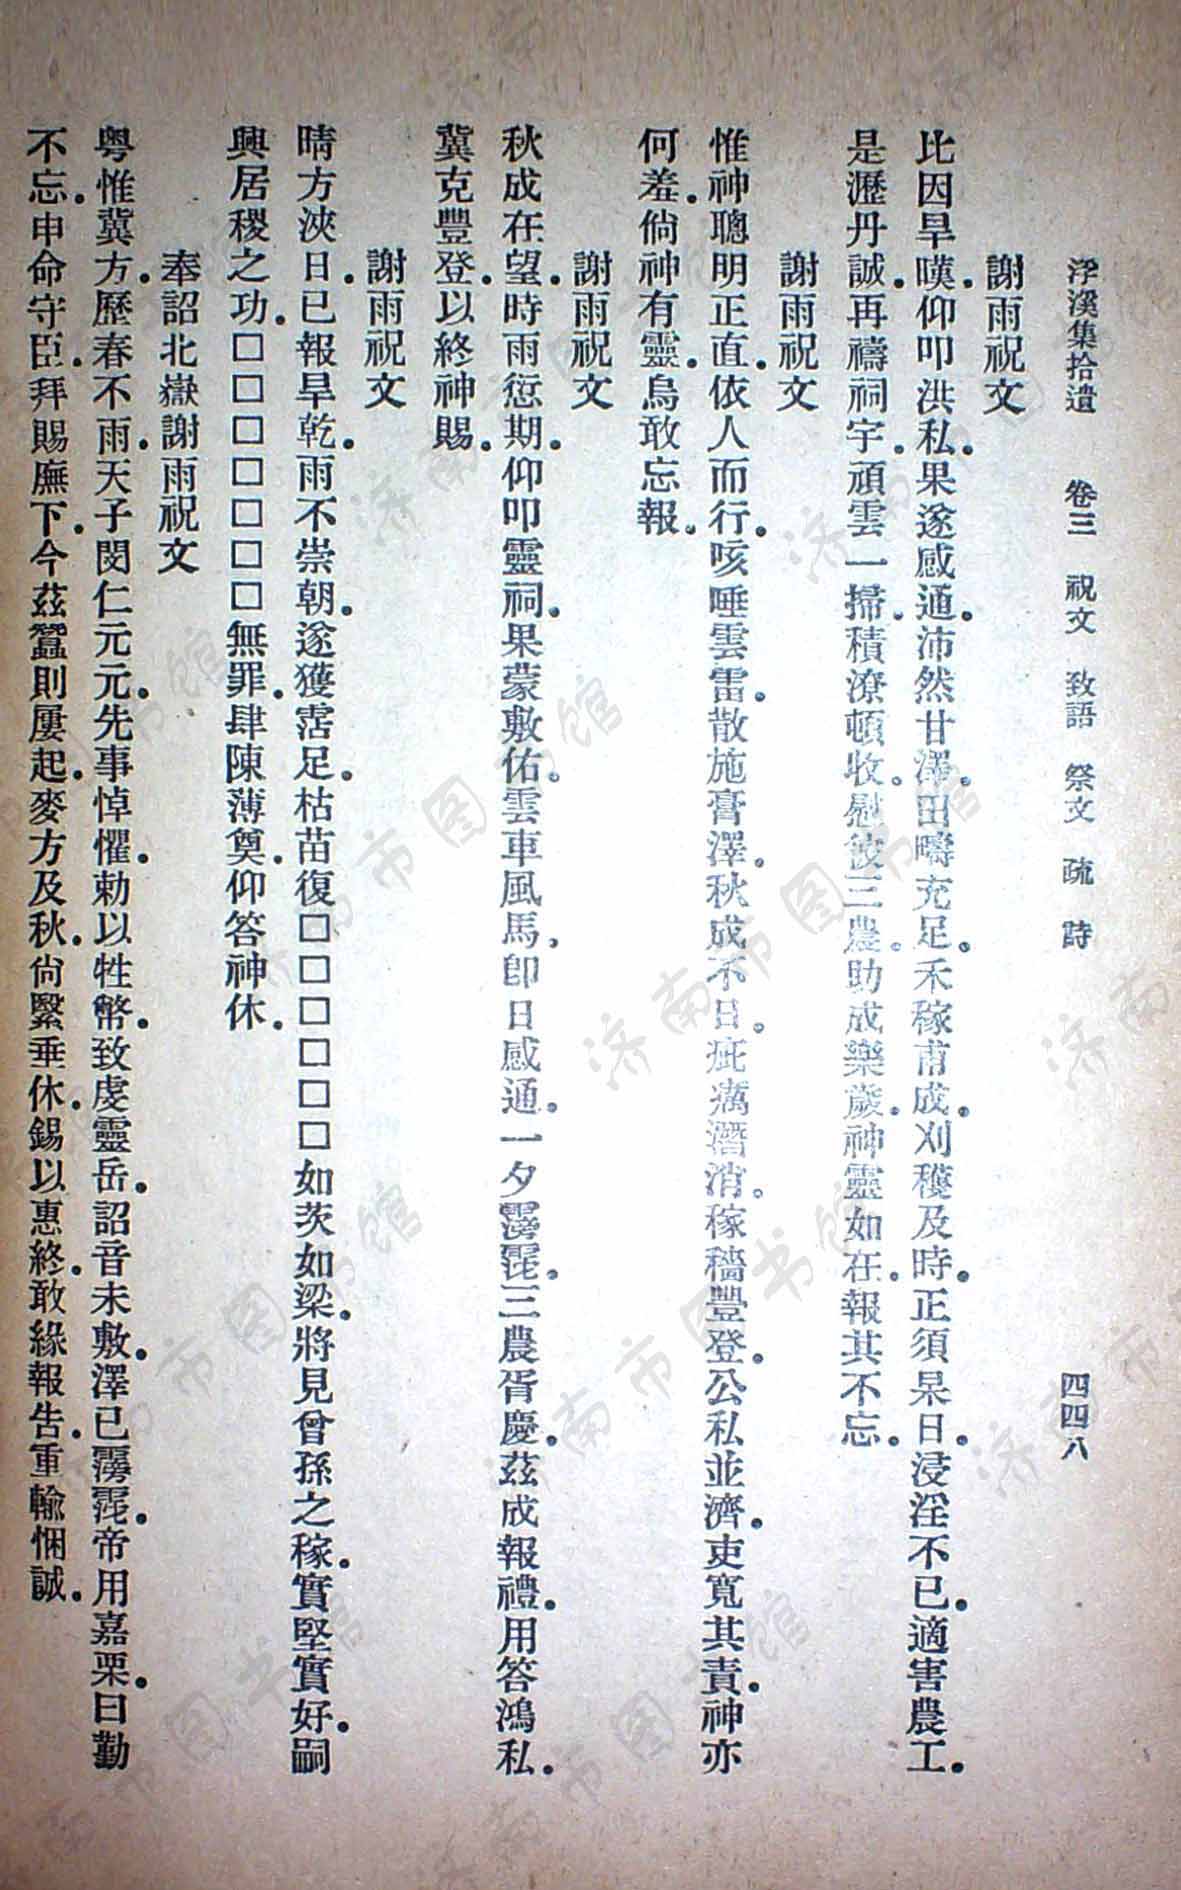 浮溪集拾遺　卷三　祝文　致語　祭文　疏　詩　四四八
謝雨祝文
比因旱暵。仰叩洪私。果遂感通。沛然甘澤。田疇充足。禾稼甫成。刈穫及時。正須杲日。浸淫不已。適害農工。
是瀝丹誠。再禱祠宇。頑雲一掃。積潦頓收。慰彼三農。助成樂歲。神靈如在。報其不忘。
謝雨祝文
惟神聰明正直。依人而行。咳唾雲雷。散施膏澤。秋成不日。疵癘潛消。稼穡豐登。公私並濟。吏寬其責。神亦
何羞。倘神有靈。烏敢忘報。
謝雨祝文
秋成在望。時雨愆期。仰叩靈祠。果蒙敷佑。雲車風馬。卽日感通。一夕霶霑。三農胥慶。茲成報禮。用答鴻私。
冀克豐登。以終神賜。
謝雨祝文
晴方浹日。已報旱乾。雨不崇朝。遂獲霑足。枯苗復□□□□□□如茨如梁。將見曾孫之稼。實堅實好。嗣
興居稷之功。□□□□□□□無罪。肆陳薄奠。仰答神休。
奉詔北嶽謝雨祝文
粵惟冀方。歷春不雨。天子閔仁元元。先事悼懼。勅以牲幣。致虔靈岳。詔音未敷。澤已霶霑。帝用嘉栗。曰勤
不忘。申命守臣。拜賜廡下。今茲蠶則屢起。麥方及秋。尙繄垂休。錫以惠終。敢緣報告。重輸悃誠。
济南市图书馆